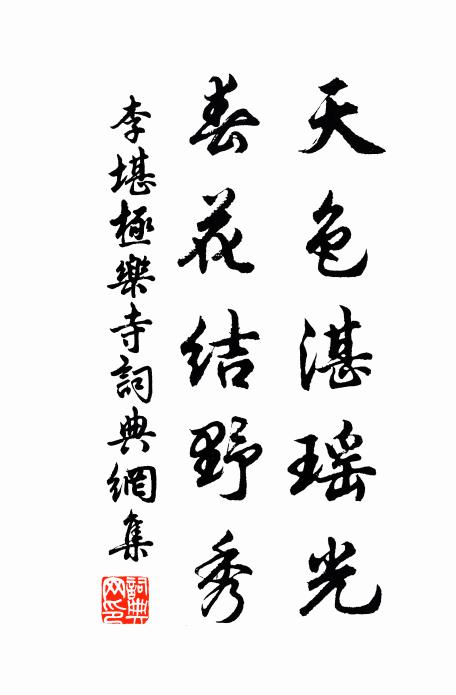 天色湛瑶光
春花结野秀
李堪極樂寺詞典網集
詞典網印